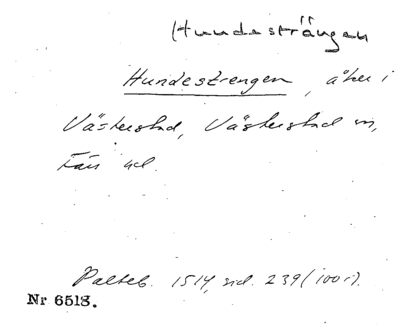 Hundesträngen
Hundestrengen, åker i
Västerstad, Västerstad sn,
Färs hd.
Palteb. 1514, sid. 239 (100 r).
Nr 6518.